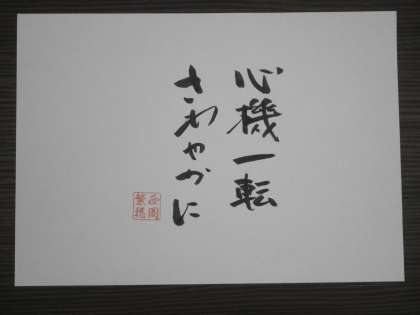 心機一転
さわやかに